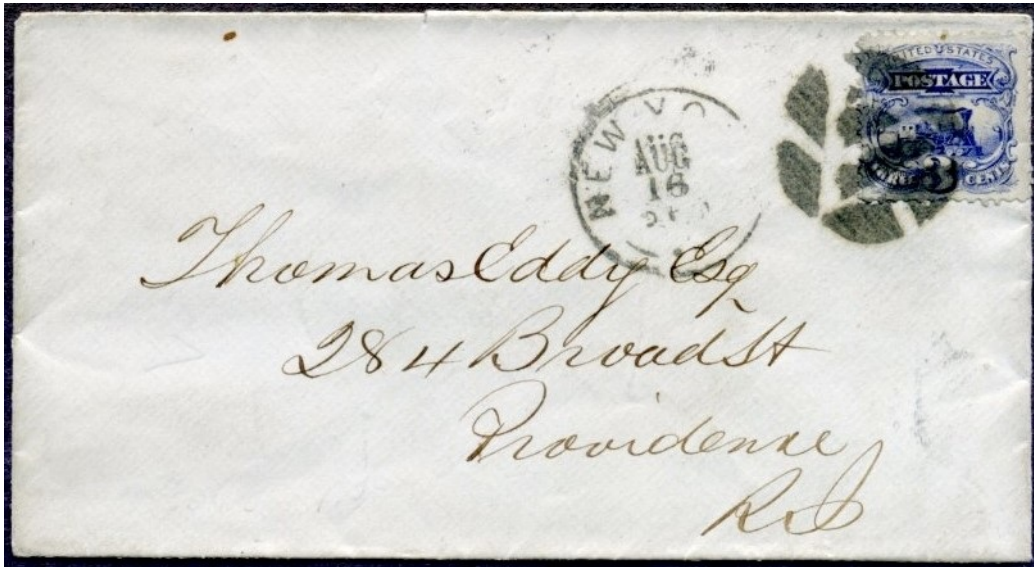 UNITED STATES
POSTAGE
3
CENTS
NEW YO
AUG
16
Thomas Eddy Esq
284 Broad St
Providence
R I